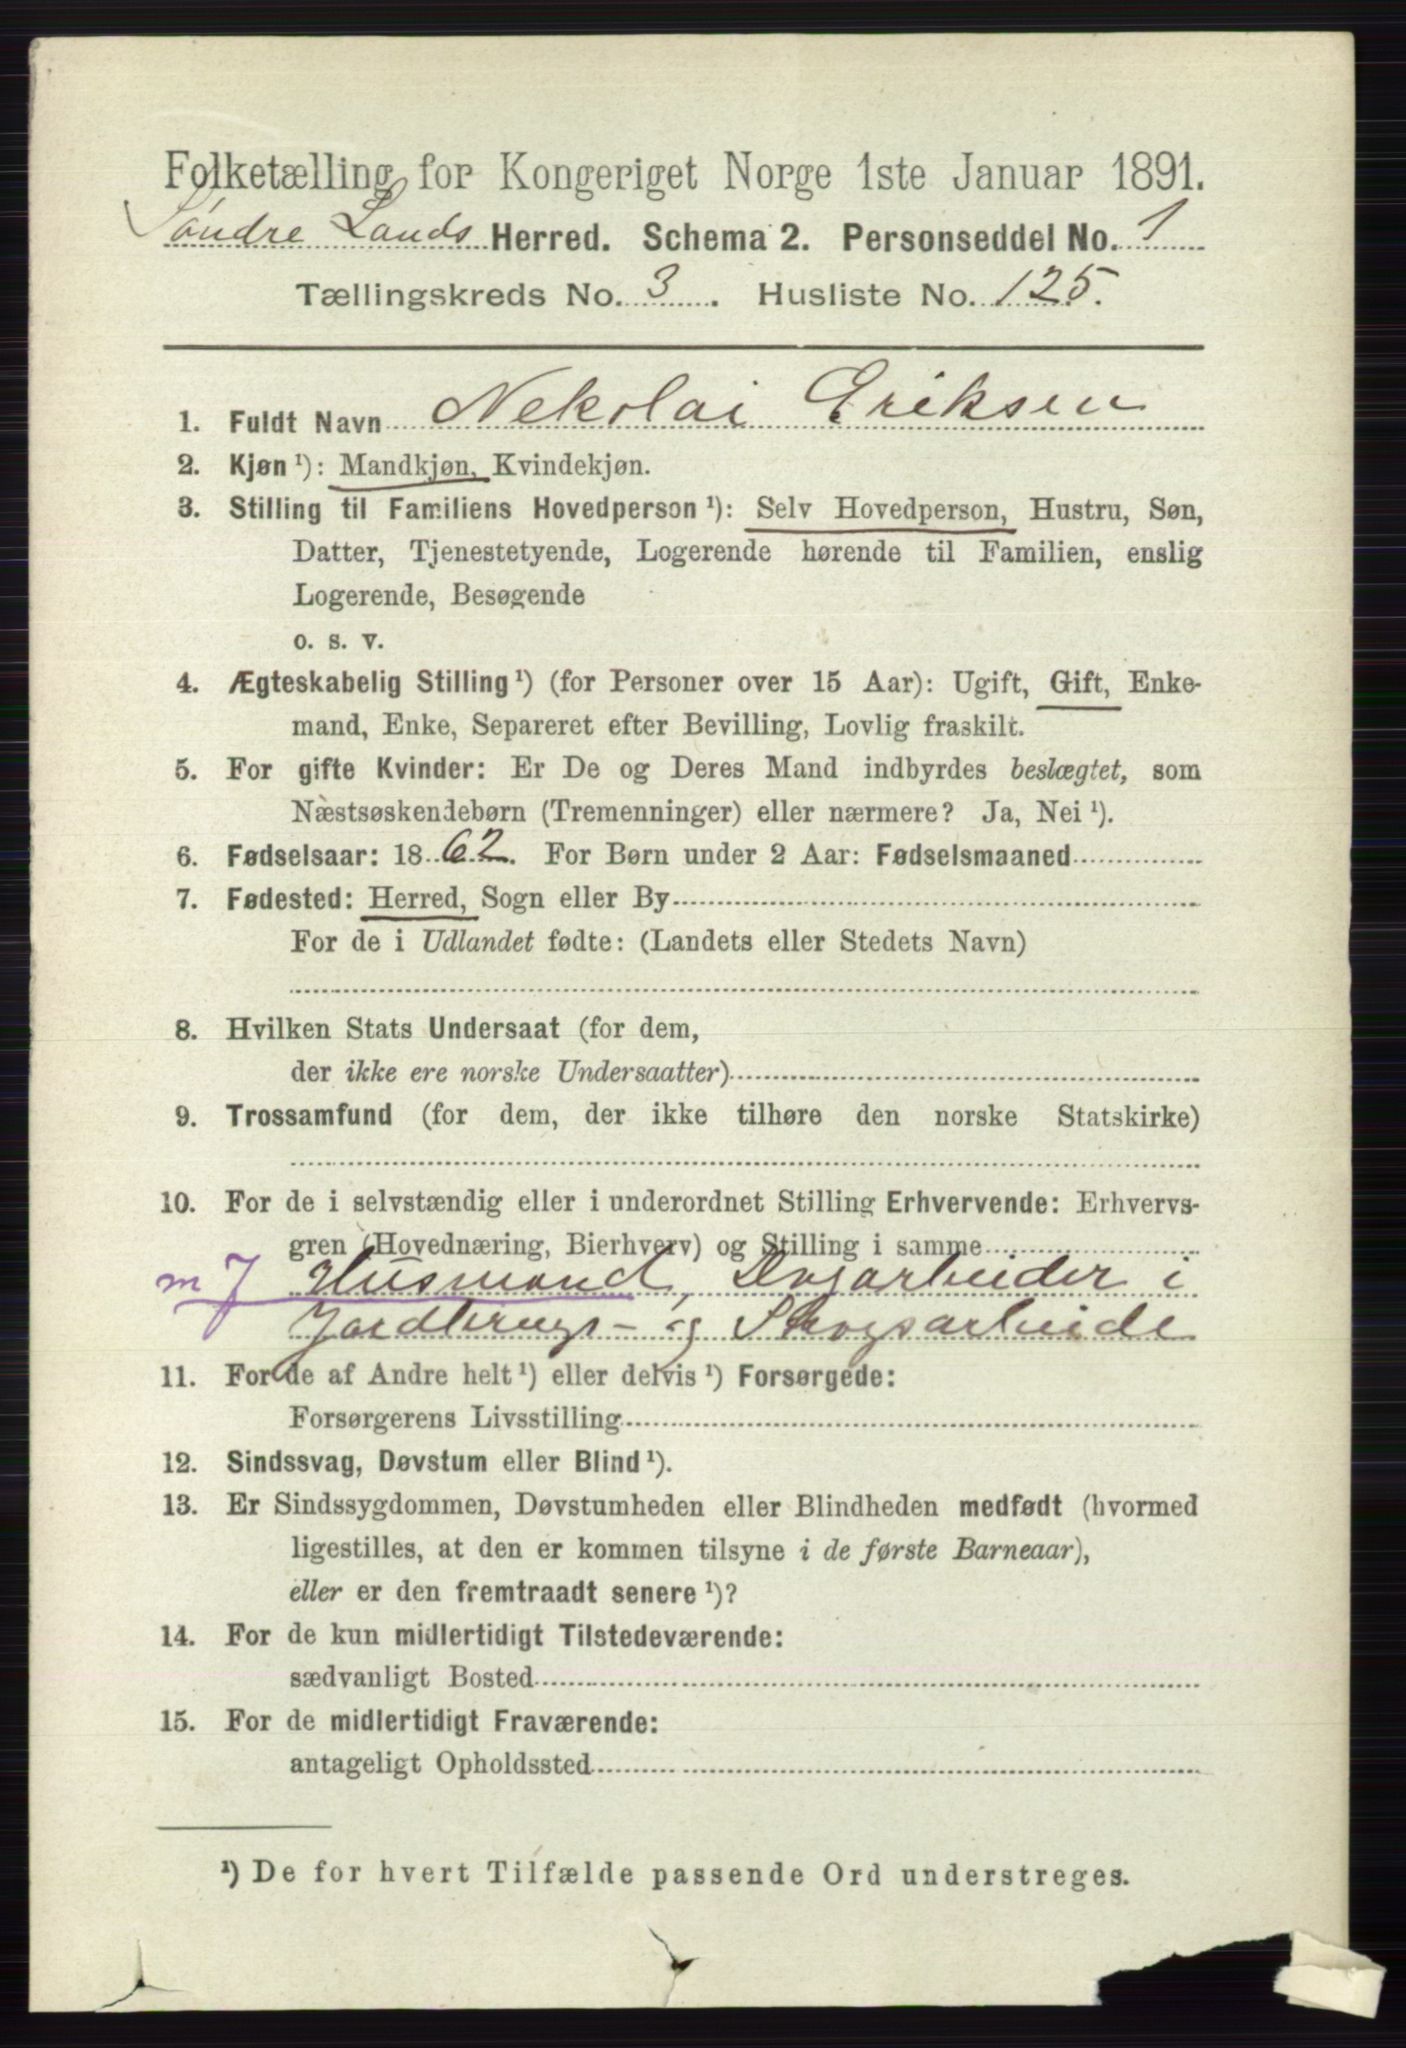 Folketælling for Kongeriget Norge 1ste Januar 1891.
Søndre Lands Herred. Schema 2. Personseddel No. 1
Tællingskreds No. 3. Husliste No. 125.
1. Fuldt Navn Nekolai Eriksen
2. Kjøn ¹): Mandkjøn, Kvindekjøn.
3. Stilling til Familiens Hovedperson ¹): Selv Hovedperson, Hustru, Søn,
Datter, Tjenestetyende, Logerende hørende til Familien, enslig
Logerende, Besøgende
o. s. v.
4. Ægteskabelig Stilling ¹) (for Personer over 15 Aar): Ugift, Gift, Enke-
mand, Enke, Separeret efter Bevilling, Lovlig fraskilt.
5. For gifte Kvinder: Er De og Deres Mand indbyrdes beslægtet, som
Næstsøskendebørn (Tremenninger) eller nærmere? Ja, Nei ¹).
6. Fødselsaar: 1862. For Børn under 2 Aar: Fødselsmaaned
7. Fødested: Herred, Sogn eller By
For de i Udlandet fødte: (Landets eller Stedets Navn)
8. Hvilken Stats Undersaat (for dem,
der ikke ere norske Undersaatter)
9. Trossamfund (for dem, der ikke tilhøre den norske Statskirke)
10. For de i selvstændig eller i underordnet Stilling Erhvervende: Erhvervs-
gren (Hovednæring, Bierhverv) og Stilling i samme
m J Husmand, Dagarbeider i
Jordbrugs- og Skogsarbeide
11. For de af Andre helt ¹) eller delvis ¹) Forsørgede:
Forsørgerens Livsstilling
12. Sindssvag, Døvstum eller Blind ¹).
13. Er Sindssygdommen, Døvstumheden eller Blindheden medfødt (hvormed
ligestilles, at den er kommen tilsyne i de første Barneaar),
eller er den fremtraadt senere ¹)?
14. For de kun midlertidigt Tilstedeværende:
sædvanligt Bosted
15. For de midlertidigt Fraværende:
antageligt Opholdssted
¹) De for hvert Tilfælde passende Ord understreges.